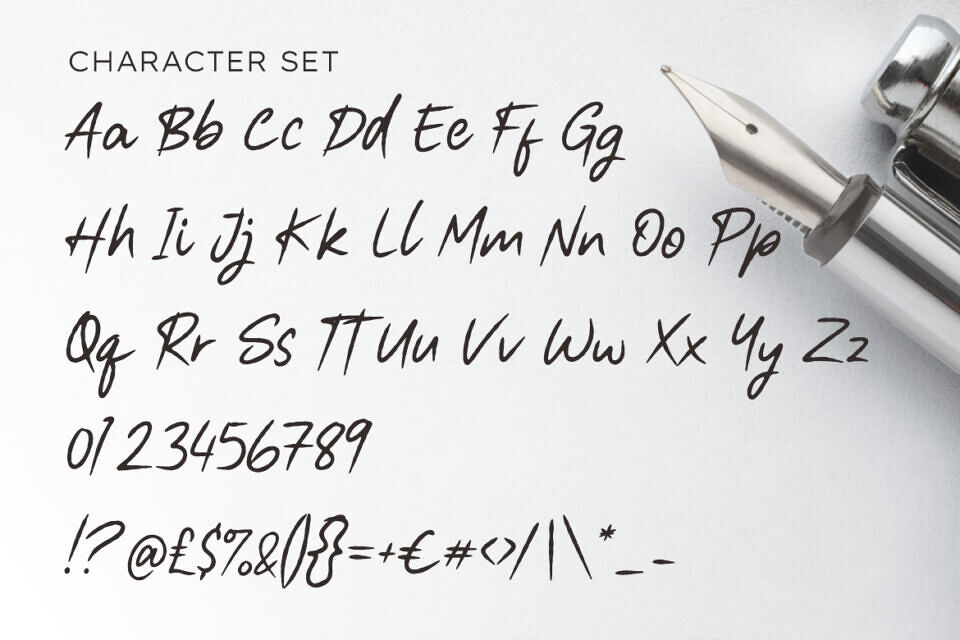 CHARACTER SET
Aa Bb Cc Dd Ee Ff Gg
Hh Ii Jj Kk Ll Mm Nn Oo Pp
Qq Rr Ss Tt Uu Vv Ww Xx Yy Zz
0123456789
!?@£$%&(){}=+€#<>/|\*_-